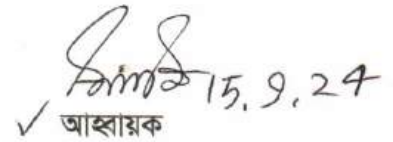 15.9.24
✓ আহ্বায়ক